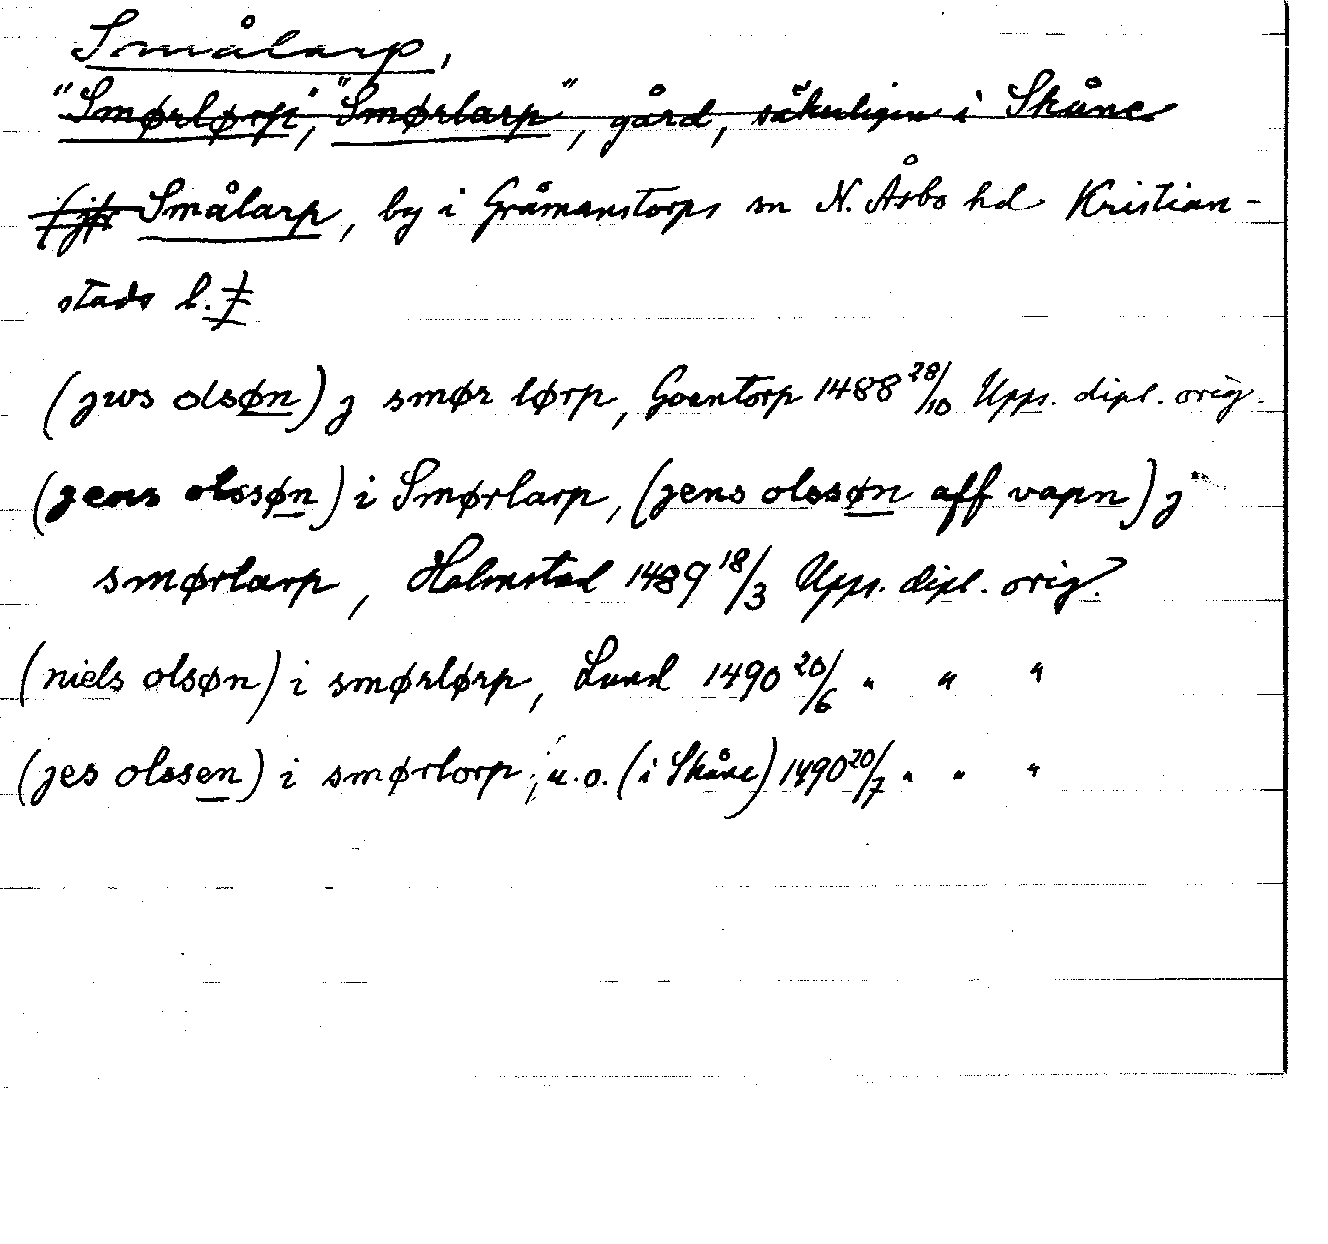 Smålarp,
"Smørlørp", "Smørlarp", gård, säkerligen i Skåne
(jfr Smålarp, by i Gråmanstorps sn N. Åsbo hd Kristian-
stads l.)
(jws olsøn) j smør lørp, Goentorp 1488 28/10 Upps. dipl. orig.
(jens olssøn) i Smørlarp, (jens olssøn aff vapn) j
smørlarp, Halmstad 1489 18/3 Upps. dipl. orig.
(niels olsøn) i smørlørp, Lund 1490 20/6 " " "
(jes olssen) i smørlorp, u.o. (i Skåne) 1490 20/7 " " "